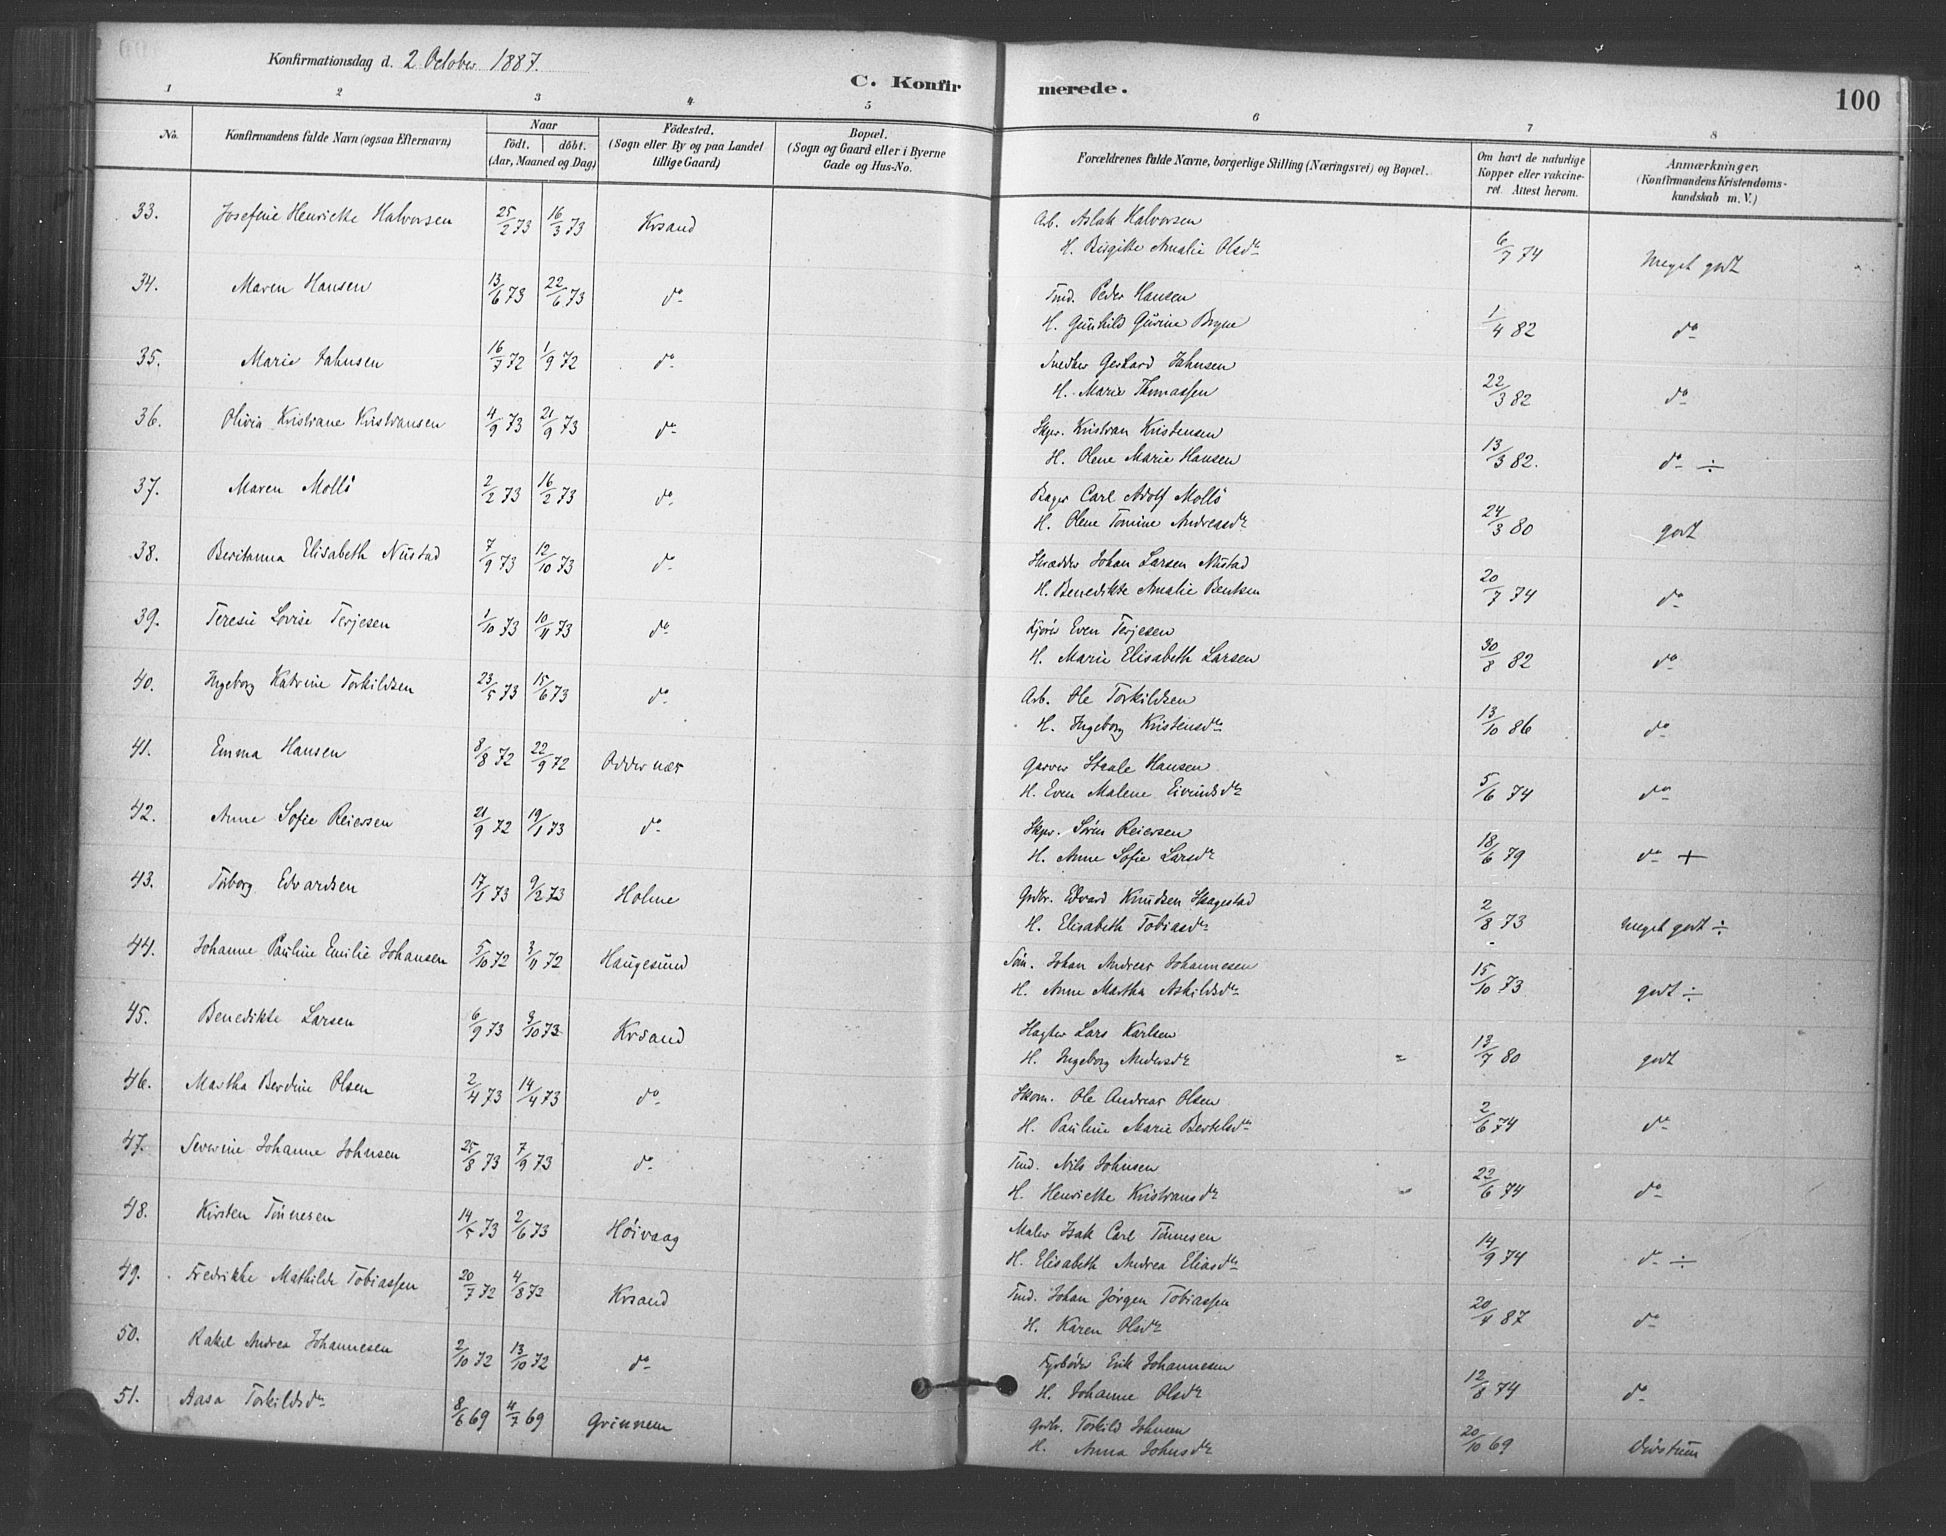 Konfirmationsdag d. 2 October 1887.
C. Konfirmerede.
100
1 2 3 4 5 6 7 8
No.
Konfirmandens fulde Navn (ogsaa Efternavn)
Naar
födt. döbt.
(Aar, Maaned og Dag)
Födested.
(Sogn eller By og paa Landet tillige Gaard)
Bopæl.
(Sogn og Gaard eller i Byerne Gade og Hus-No.
Forældrenes fulde Navne, borgerlige Stilling (Næringsvei) og Bopæl.
Om havt de naturlige Kopper eller vakcineret. Attest herom.
Anmærkninger.
(Konfirmandens Kristendomskundskab m. V.)
33. Josefine Henriette Halvorsen 25/2 73 16/3 73 Krsand Arb. Aslak Halvorsen
H. Birgitte Amalie Olsdr 6/7 74 Meget godt
34. Maren Hansen 13/6 73 22/6 73 do Tmd. Peder Hansen
H. Gunhild Gurine Bryne 1/4 82 do
35. Marie Jahnsen 16/7 72 1/9 72 do Snedker Gerhard Jahnsen
H. Marie Thomassen 22/3 82 do
36. Olivia Kristiane Kristiansen 4/9 73 21/9 73 do Skpr. Kristian Kristensen
H. Olene Marie Hansen 13/3 82. do ÷
37. Maren Mollö 2/2 73 16/2 73 do Bager Carl Adolf Mollö
H. Olene Tomine Andreasdr 24/3 80 godt
38. Beritanna Elisabeth Nustad 7/9 73 12/10 73 do Skrædder Johan Larsen Nustad
H. Benedikte Amalie Bentsen 20/7 74 do
39. Teresie Lovise Terjesen 1/10 73 10/11 73 do Kjörer Even Terjesen
H. Marie Elisabeth Larsen 30/8 82 do
40. Ingeborg Katrine Torkildsen 23/5 73 15/6 73 do Arb. Ole Torkildsen
H. Ingeborg Kristensdr 13/10 86 do
41. Emma Hansen 8/8 72 22/9 72 Oddernæs Garver Staale Hansen
H. Even Malene Eivindsdr 5/6 74 do
42. Anne Sofie Reiersen 21/9 72 19/1 73 do Skpr. Sören Reiersen
H. Anne Sofie Larsdr 18/6 79 do +
43. Torborg Edvardsen 17/1 73 9/2 73 Holme Grdbr. Edvard Knudsen Skagestad
H. Elisabeth Tobiasdr 2/8 73 meget godt ÷
44. Johanne Pauline Emilie Johansen 5/10 72 3/11 72 Haugesund Töm. Johan Andreas Johannesen
H. Anne Martha Askildsdr 15/10 73 godt ÷
45. Benedikte Larsen 6/9 73 3/10 73 Krsand Lars Karlsen
H. Ingeborg Andersdr 13/7 80 godt
46. Martha Berdine Olsen 2/4 73 14/4 73 do Skom. Ole Andreas Olsen
H. Pauline Marie Bertelsdr 2/6 74 do
47. Severine Johanne Johnsen 25/8 73 7/9 73 do Tmd. Nils Johnsen
H. Henriette Kristiansdr 22/6 74 do
48. Kirsten Tönnesen 14/5 73 2/6 73 Höivaag Maler Isak Carl Tönnesen
H. Elisabeth Andrea Eliasdr 14/9 74 do ÷
49. Fredrikke Mathilde Tobiassen 20/7 72 4/8 72 Krsand Tmd. Johan Jörgen Tobiassen
H. Karen Olsdr 20/4 87 do
50. Rakel Andrea Johannesen 2/10 72 13/10 72 do Fyrböder Erik Johannesen
H. Johanne Olsdr 12/8 74 do
51. Aasa Torkildsdr 8/6 69 4/7 69 Grinnem Grdbr. Torkild Johnsen
H. Anna Johnsdr 20/10 69